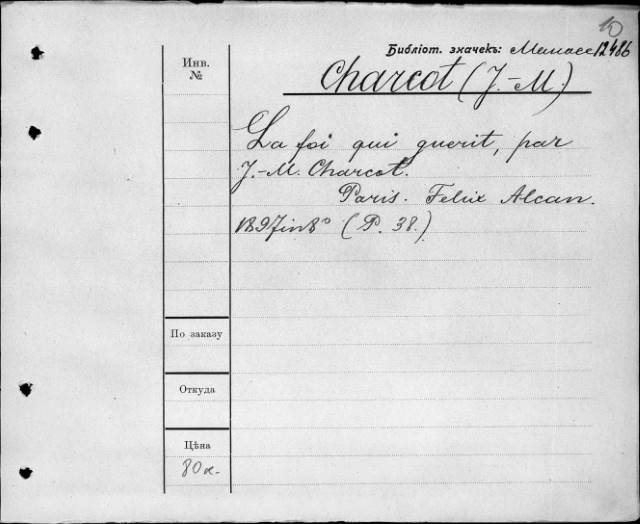 10
Библіот. значекъ: 12486
Инв.
№
Charcot (J.-M.)
La foi qui guerit, par
J.-M. Charcot.
Paris. Felix Alcan.
1897 in 8° (P. 38.)
По заказу
Откуда
Цѣна
80 к.